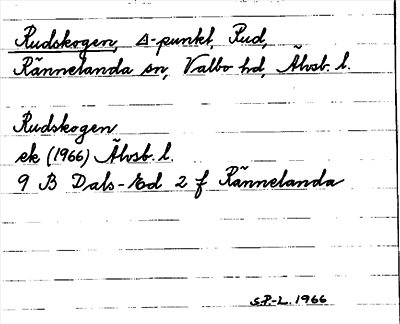 Rudskogen, Δ-punkt, Rud,
Rännelanda sn, Valbo hd, Älvsb. l.
Rudskogen
ek (1966) Älvsb. l.
9 B Dals-Ed 2 f Rännelanda
S.P.-L. 1966